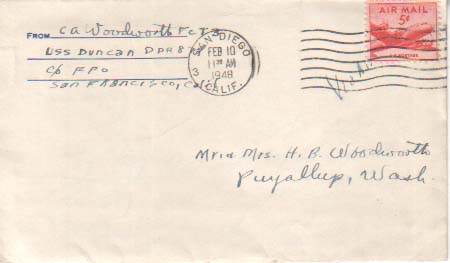 FROM CA Woodworth FCT3
USS Duncan DDR 8
c/o FPO
San Francisco, Calif
SAN DIEGO
FEB 10
11 30 AM
1948
3 CALIF.
AIR MAIL
5¢
U.S. POSTAGE
Mr & Mrs. H. B. Woodworth
Puyallup, Wash.